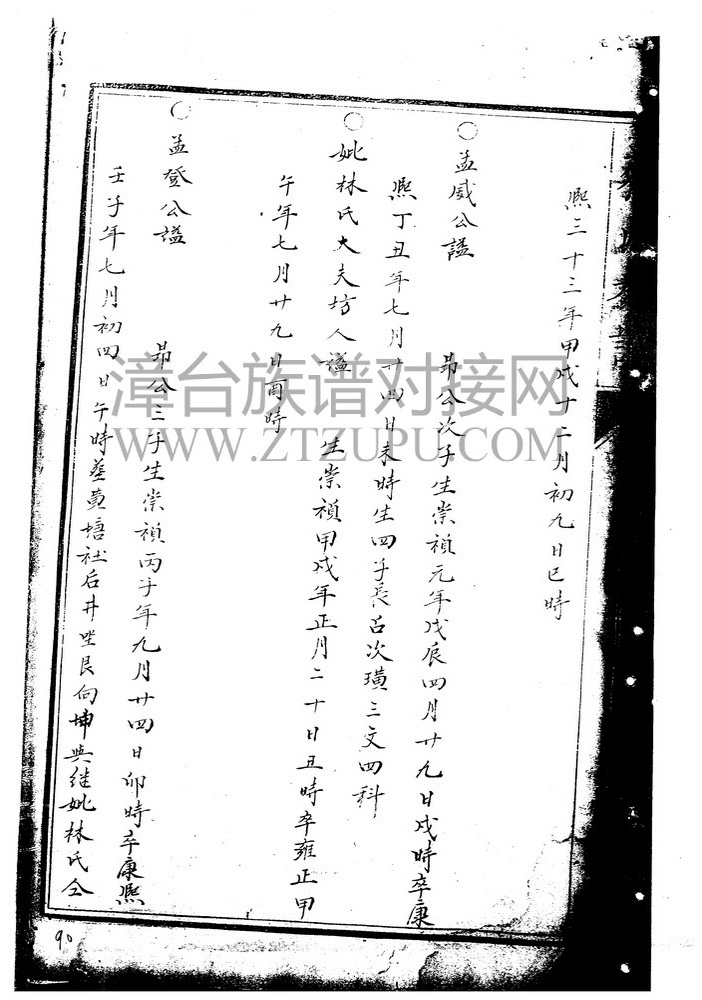 熙三十三年甲戌十二月初九日巳時
○孟威公諡
昴公次子生崇禎元年戊辰四月廿九日戌時卒康
熙丁丑年七月廿四日未時生四子長呂次璜三文四科
○妣林氏大夫坊人諡
生崇禎甲戌年正月二十日丑時卒雍正甲
午年七月廿九日酉時
○孟登公諡
昴公三子生崇禎丙子年九月廿四日卯時卒康熙
壬子年七月初四日午時葬黄塘社后井坐艮向坤與继妣林氏仝
漳台族谱对接网
WWW.ZTZUPU.COM
90